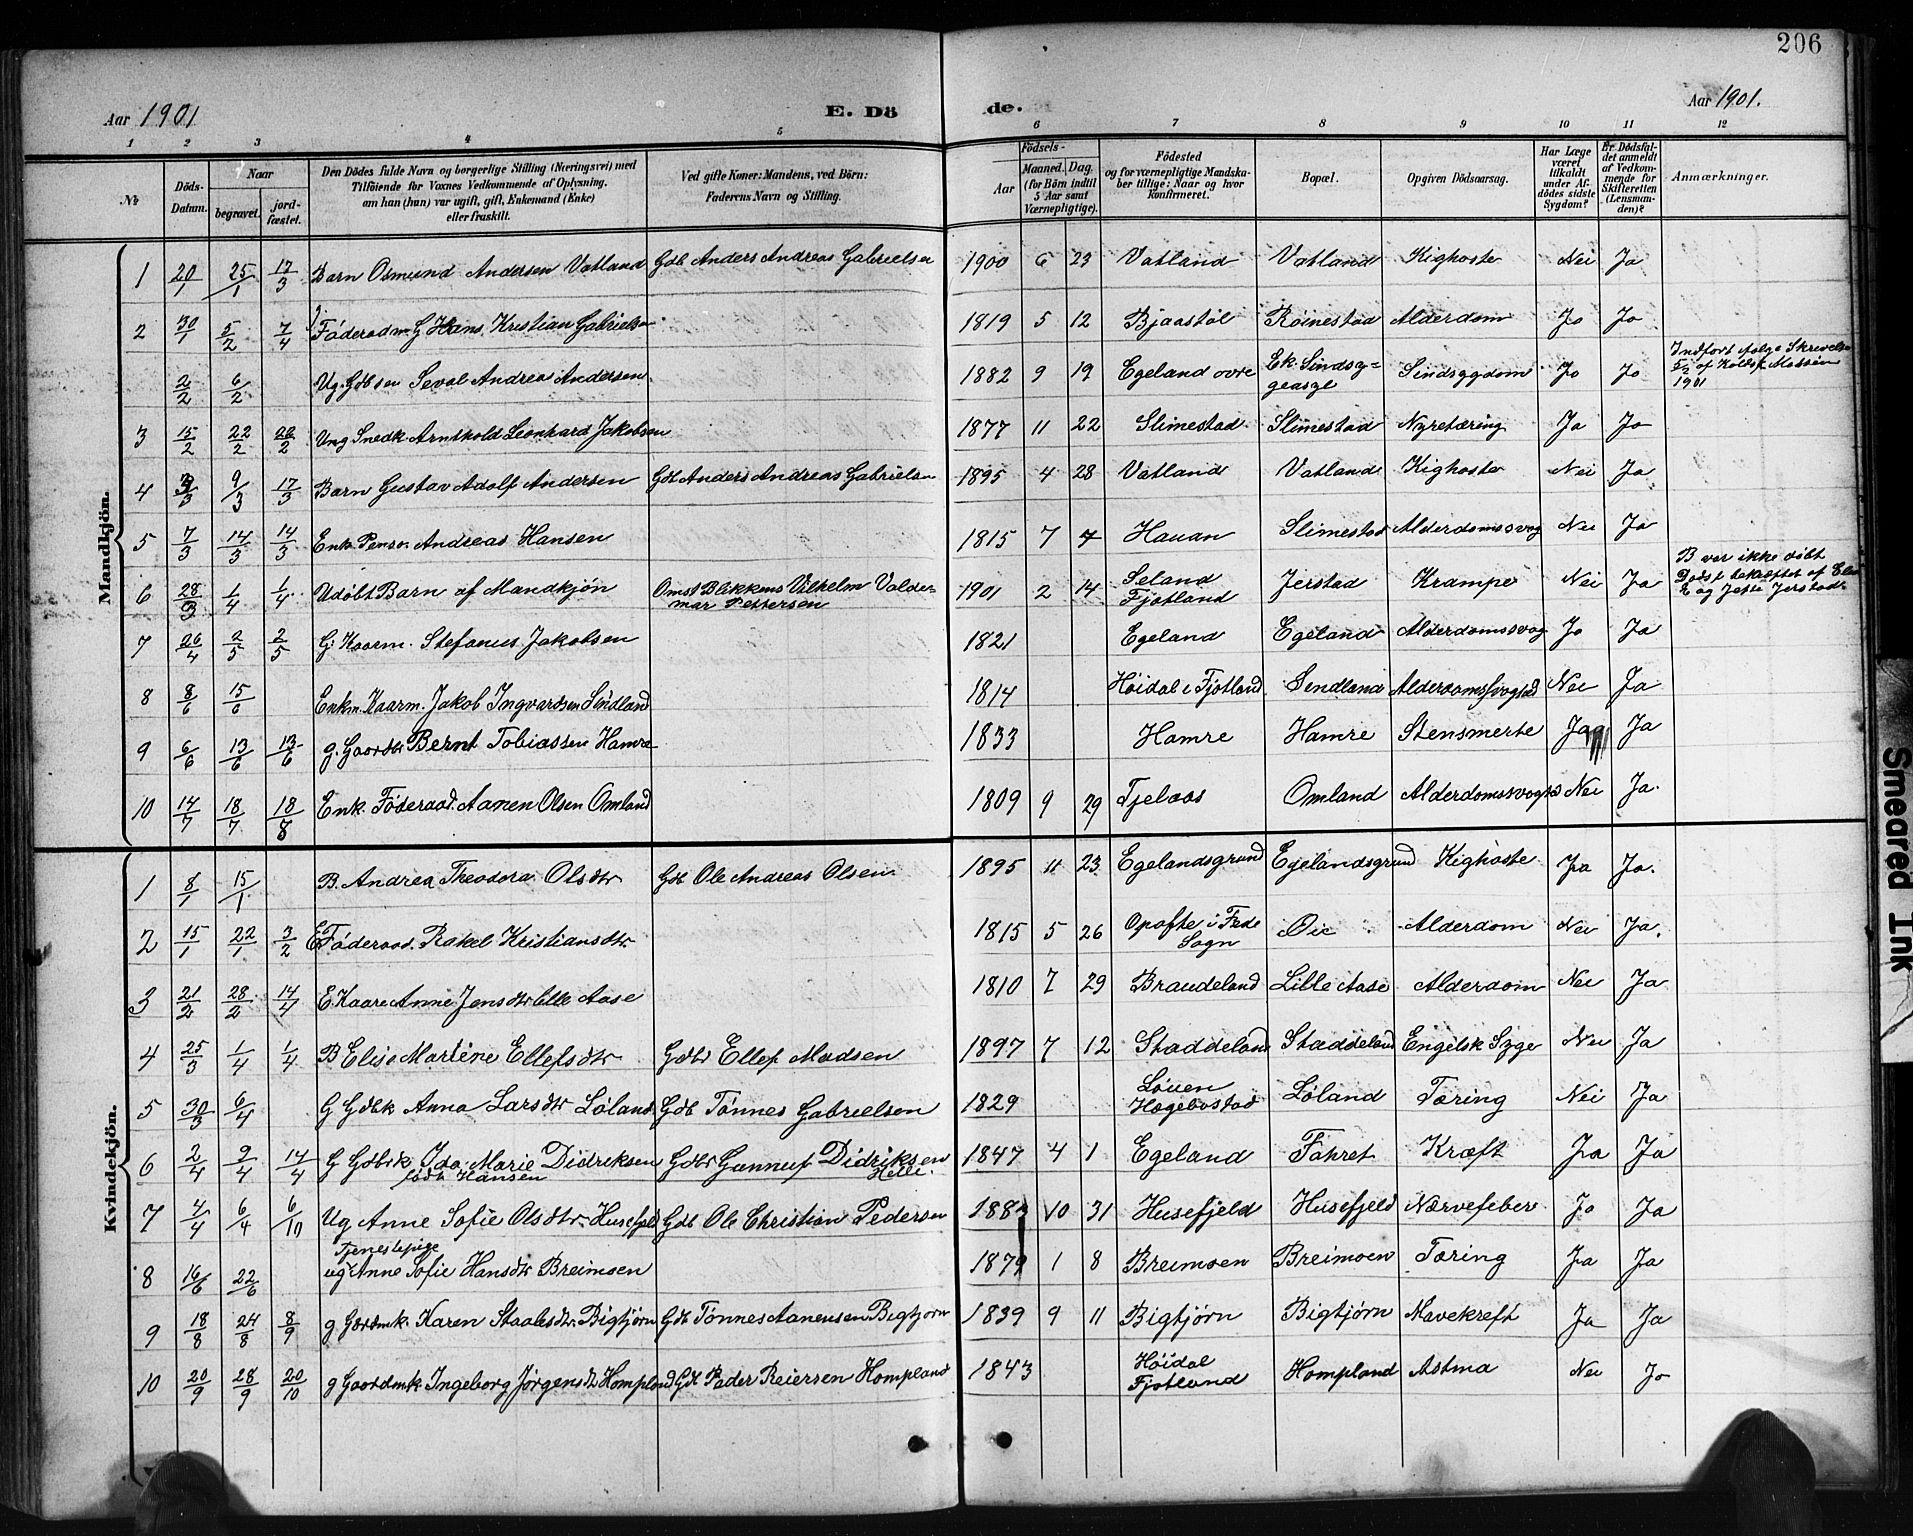 206
Aar 1901 E. Dö de. Aar 1901.
1 2 3 4 5 6 7 8 9 10 11 12
No
Döds-Datum.
Naar
begravet.
jord-fæstet.
Den Dödes fulde Navn og borgerlige Stilling (Næringsvei) med
Tilföiende for Voxnes Vedkommende af Oplysning,
om han (hun) var ugift, gift, Enkemand (Enke)
eller fraskilt.
Ved gifte Koner: Mandens, ved Börn:
Faderens Navn og Stilling.
Födsels-
Aar
Maaned. Dag.
(for Börn indtil
5 Aar samt
Værnepligtige).
Födested
og for værnepligtige Mandska-
ber tillige: Naar og hvor
konfirmeret.
Bopæl.
Opgiven Dödsaarsag.
Har Læge
været
tilkaldt
under Af-
dödes sidste
Sygdom?
Er Dödsfal-
det anmeldt
af Vedkom-
mende for
Skifteretten
(Lensman-
den)?
Anmærkninger.
Mandkjön.
1 20/1 25/1 17/3 Barn Osmund Andersen Vatland Gdb Anders Andreas Gabrielsen 1900 6 23 Vatland Vatland Kighoste Nei Ja
2 30/1 5/2 7/4 Föderaadm G Hans Kristian Gabrielsen 1819 5 12 Bjaastöl Röinestad Alderdom Jo Jo
2/2 6/2 Ug. Gdb sen Seval Andreas Andersen 1882 9 19 Egeland övre Ek. Sindsyg=
geasyl Sindsygdom Jo Jo Indfört Skrivelse
1901
3 15/2 22/2 26/2 Ung Snedk. Arnthold Leonhard Jakobsen 1877 11 22 Slimestad Slimestad Nyretæring Ja Jo
4 3/3 9/3 17/3 Barn Gustav Adolf Andersen Gdb Anders Andreas Gabrielsen 1895 4 28 Vatland Vatland Kighoste Nei Ja
5 7/3 14/3 14/3 Enk Andreas Hansen 1815 7 4 Hauan Slimestad Alderdomssvag Nei Ja
6 28/3 1/4 1/4 Udöbt Barn af Mandkjön Omst Blikkens Vilhelm Valde-
mar Pettersen 1901 2 14 Seland
Fjotland Jerstad Krampe Nei Ja B var ikke döbt
bekræftet af
og Jerstad
7 26/4 2/5 2/5 G. Kaarm. Stefanus Jakobsen 1821 Egeland Egeland Alderdomssvag Jo Ja
8 8/6 15/6 Enkm. Kaarm. Jakob Ingvardsen Sindland 1814 Höidal i Fjotland Sendland Alderdomssvaghed Nei Ja
9 6/6 13/6 13/6 g. Gaardbr Bernt Tobiassen Hamre 1833 Hamre Hamre Stensmerte Ja Ja
10 14/7 18/7 18/8 Enk. Föderaad. Aanen Olsen Omland 1809 9 29 Tjelaas Omland Alderdomssvaghed Nei Ja.
Kvindekjön.
1 8/1 15/1 B. Andrea Theodora Olsdtr Gdb Ole Andreas Olsen 1895 11 23 Egelandsgrund Egelandsgrund Kighoste Ja Ja.
2 15/1 22/1 3/2 E Föderaad. Rakel Kristiansdtr 1815 5 26 Opofte i Fede
Sogn Öie Alderdom Nei Ja.
3 21/2 28/2 14/4 E Kaare Anne Jensdtr Lille Aase 1810 7 29 Braudeland Lille Aase Alderdom Nei Ja
4 25/3 1/4 1/4 B Elise Martine Ellefsdtr Gdbr Ellef Madsen 1897 7 12 Staddeland Staddeland Engelsk Syge Nei Ja
5 30/3 6/4 G Gdbk Anna Larsdtr Löland Gdb Tönnes Gabrielsen 1829 Löuen
Hægebostad Löland Tæring Nei Ja
6 2/4 9/4 14/4 G Gdbrk Ida Marie Didriksen
födt Hansen Gdbr Gunneuf Didriksen
Helle. 1847 4 1 Egeland Fahret Kræft Ja Ja
7 4/4 6/4 6/10 Ug Anne Sofie Olsdtr Husefjeld Gdb Ole Christian Pedersen 188 10 31 Husefjeld Husefjeld Nærvefeber Jo Ja
8 16/6 22/6 Tjenestepige
ug Anne Sofie Hansdtr Breimoen 1879 1 8 Breimoen Breimoen Tæring Ja Ja
9 18/8 24/8 8/9 g Gaardmk. Karen Staalesdtr Bigtjörn Gdb Tönnes Aanensen Bigtjörn 1839 9 11 Bigtjörn Bigtjörn Mavekreft Ja Ja
10 20/9 28/9 20/10 g Gaardmk Ingeborg Jörgensdtr Hompland Gdb Peder Reiersen Hompland 1843 Höidal
Fjotland Hompland Astma Nei Jo
Smeared Ink